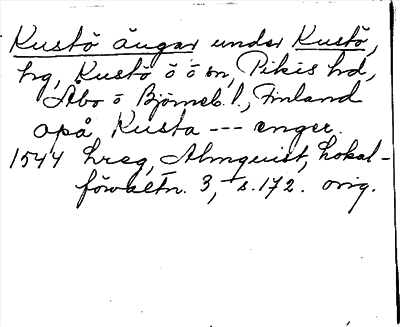 Kustö ängar under Kustö,
hg, Kustö ö ö sn, Pikis hd,
Åbo o Björneb. l., Finland
apå Kusta --- enger.
1544 hreg, Almquist, Lokal-
förvaltn. 3, s. 172. orig.